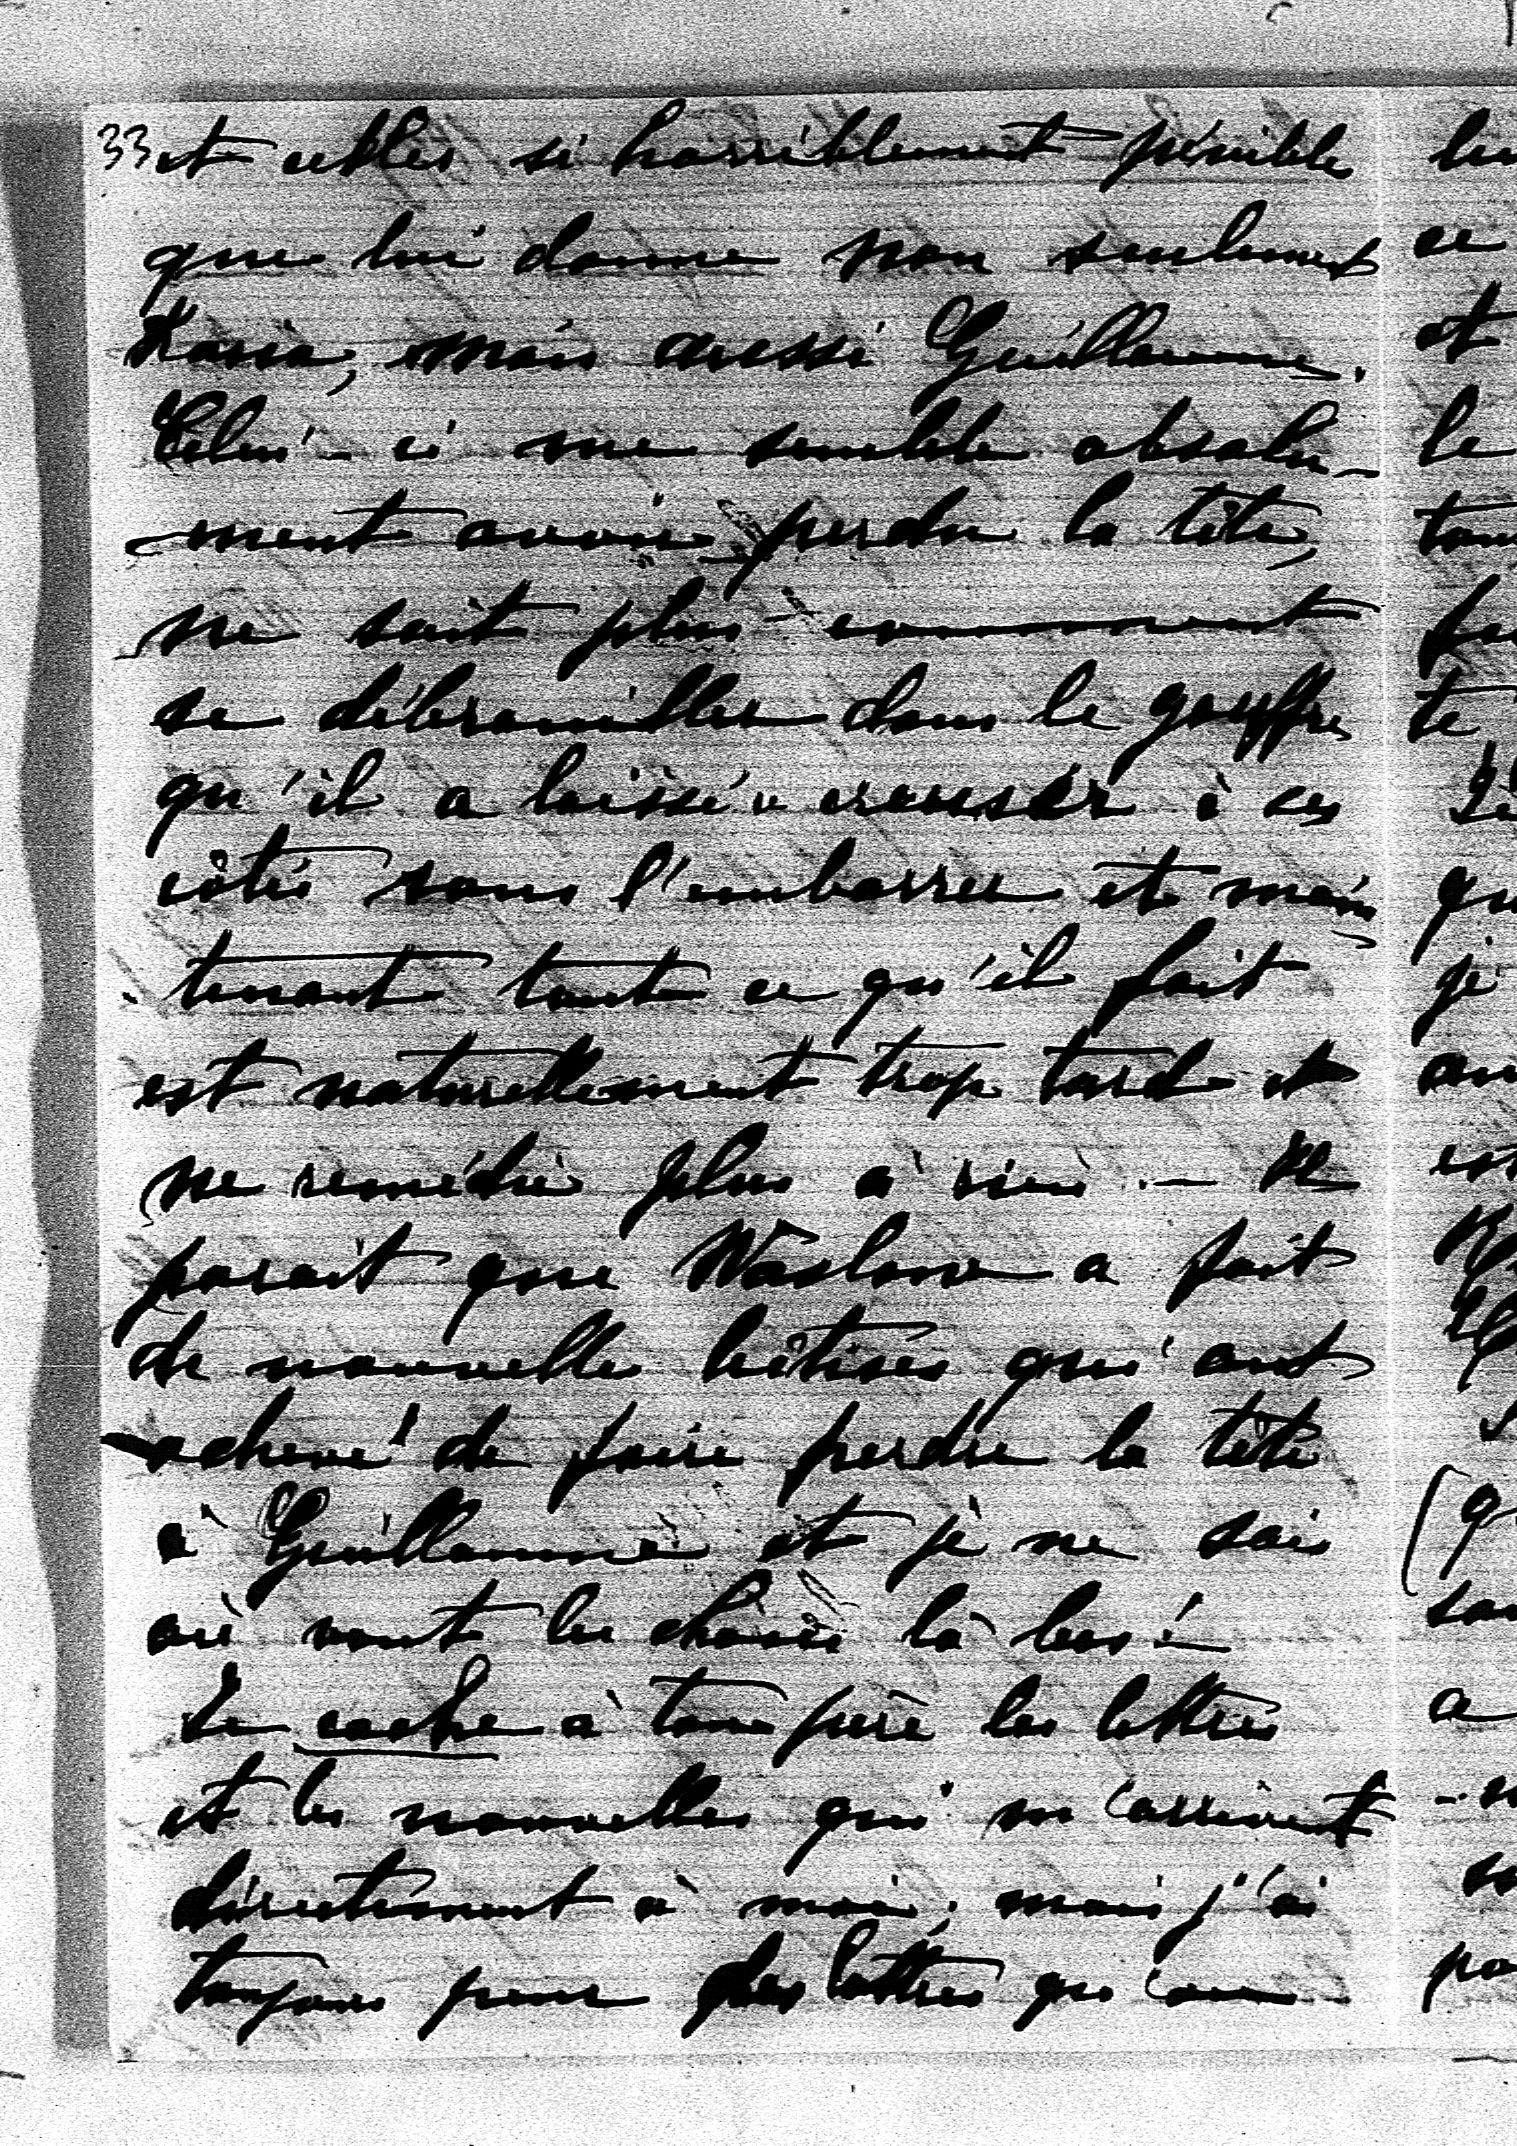 33 et celles si horriblement pénibles
que lui donne non seulement
Kasia, mais aussi Guillaume.
Celui-ci me semble absolu-
-ment avoir perdu la tête,
ne sait plus comment
se débrouiller dans le gouffre
qu'il a laissé creuser à ses
côtés sans l'embarras et main
-tenant tout ce qu'il fait
est naturellement trop tard et
ne remédie plus à rien. — Il
parait que Waslaw a fait
de nouvelles bêtises qui ont
achevé de faire perdre la tête
à Guillaume et je ne sais
où vont les choses là bas! —
Je cache à ton père les lettres
et les nouvelles qui m'arrivent
directement à moi; mais j'ai
toujours peur des lettres qu'on